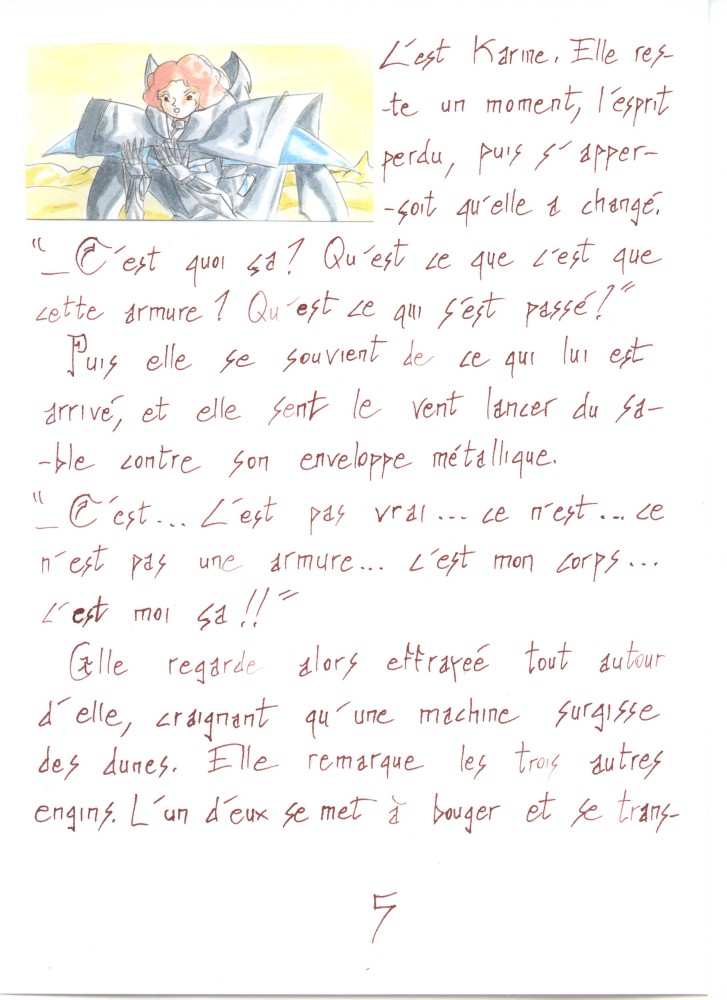 C'est Karine. Elle res-
-te un moment, l'esprit
perdu, puis s'apper-
-soit qu'elle a changé.
"_ C'est quoi ça? Qu'est ce que c'est que
cette armure? Qu'est ce qui s'est passé?"
Puis elle se souvient de ce qui lui est
arrivé, et elle sent le vent lancer du sa-
-ble contre son enveloppe métallique.
"_ C'est... C'est pas vrai... ce n'est... ce
n'est pas une armure... c'est mon corps...
c'est moi ça!!"
Elle regarde alors effrayeé tout autour
d'elle, craignant qu'une machine surgisse
des dunes. Elle remarque les trois autres
engins. L'un d'eux se met à bouger et se trans-
5